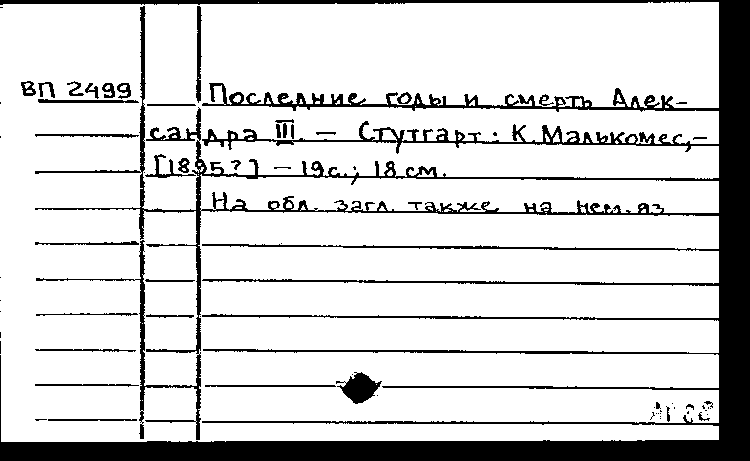 ВП 2499 Последние годы и смерть Алек-
сандра III. — Стутгарт: К. Малькомес,-
[1895?] - 19с.; 18 см.
На обл. загл. также на нем. яз